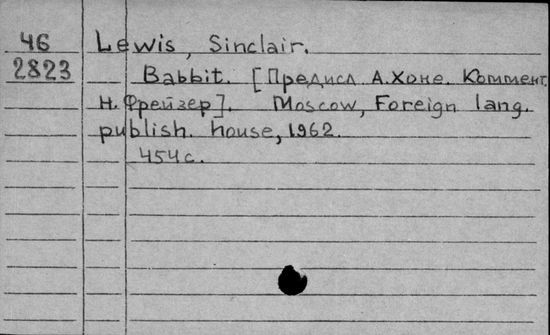 46 Lewis, Sinclair.
2823 Babbit. [Предисл А.Хоне. Коммент.
Н.Фрейзер]. Moscow, Foreign lang.
publish. house, 1962.
454с.